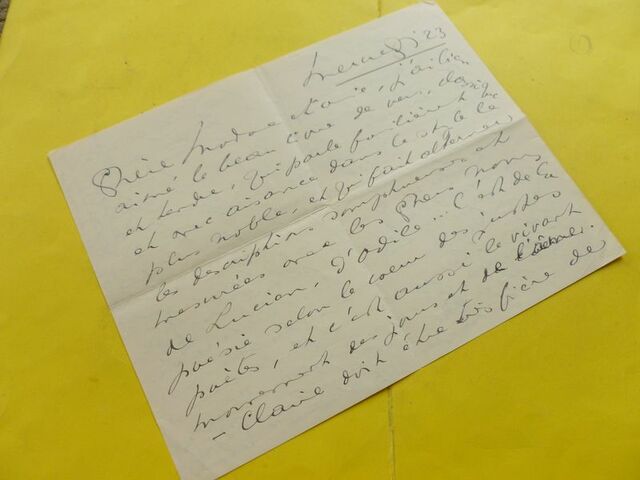 Mercredi 23
Chère Madame et amie, j'ai bien
aimé le beau livre de vers, classique
et tendre, qui parle familièrement
et avec aisance dans le style le
plus noble, et qui fait alterner
les descriptions somptueuses et
mesurées avec les pleurs
de Lucian, d'Odile... C'est de la
poésie selon le coeur des justes
poètes, et c'est aussi le vivant
mouvement des jours et de l'âme.
- Claire doit être très fière de